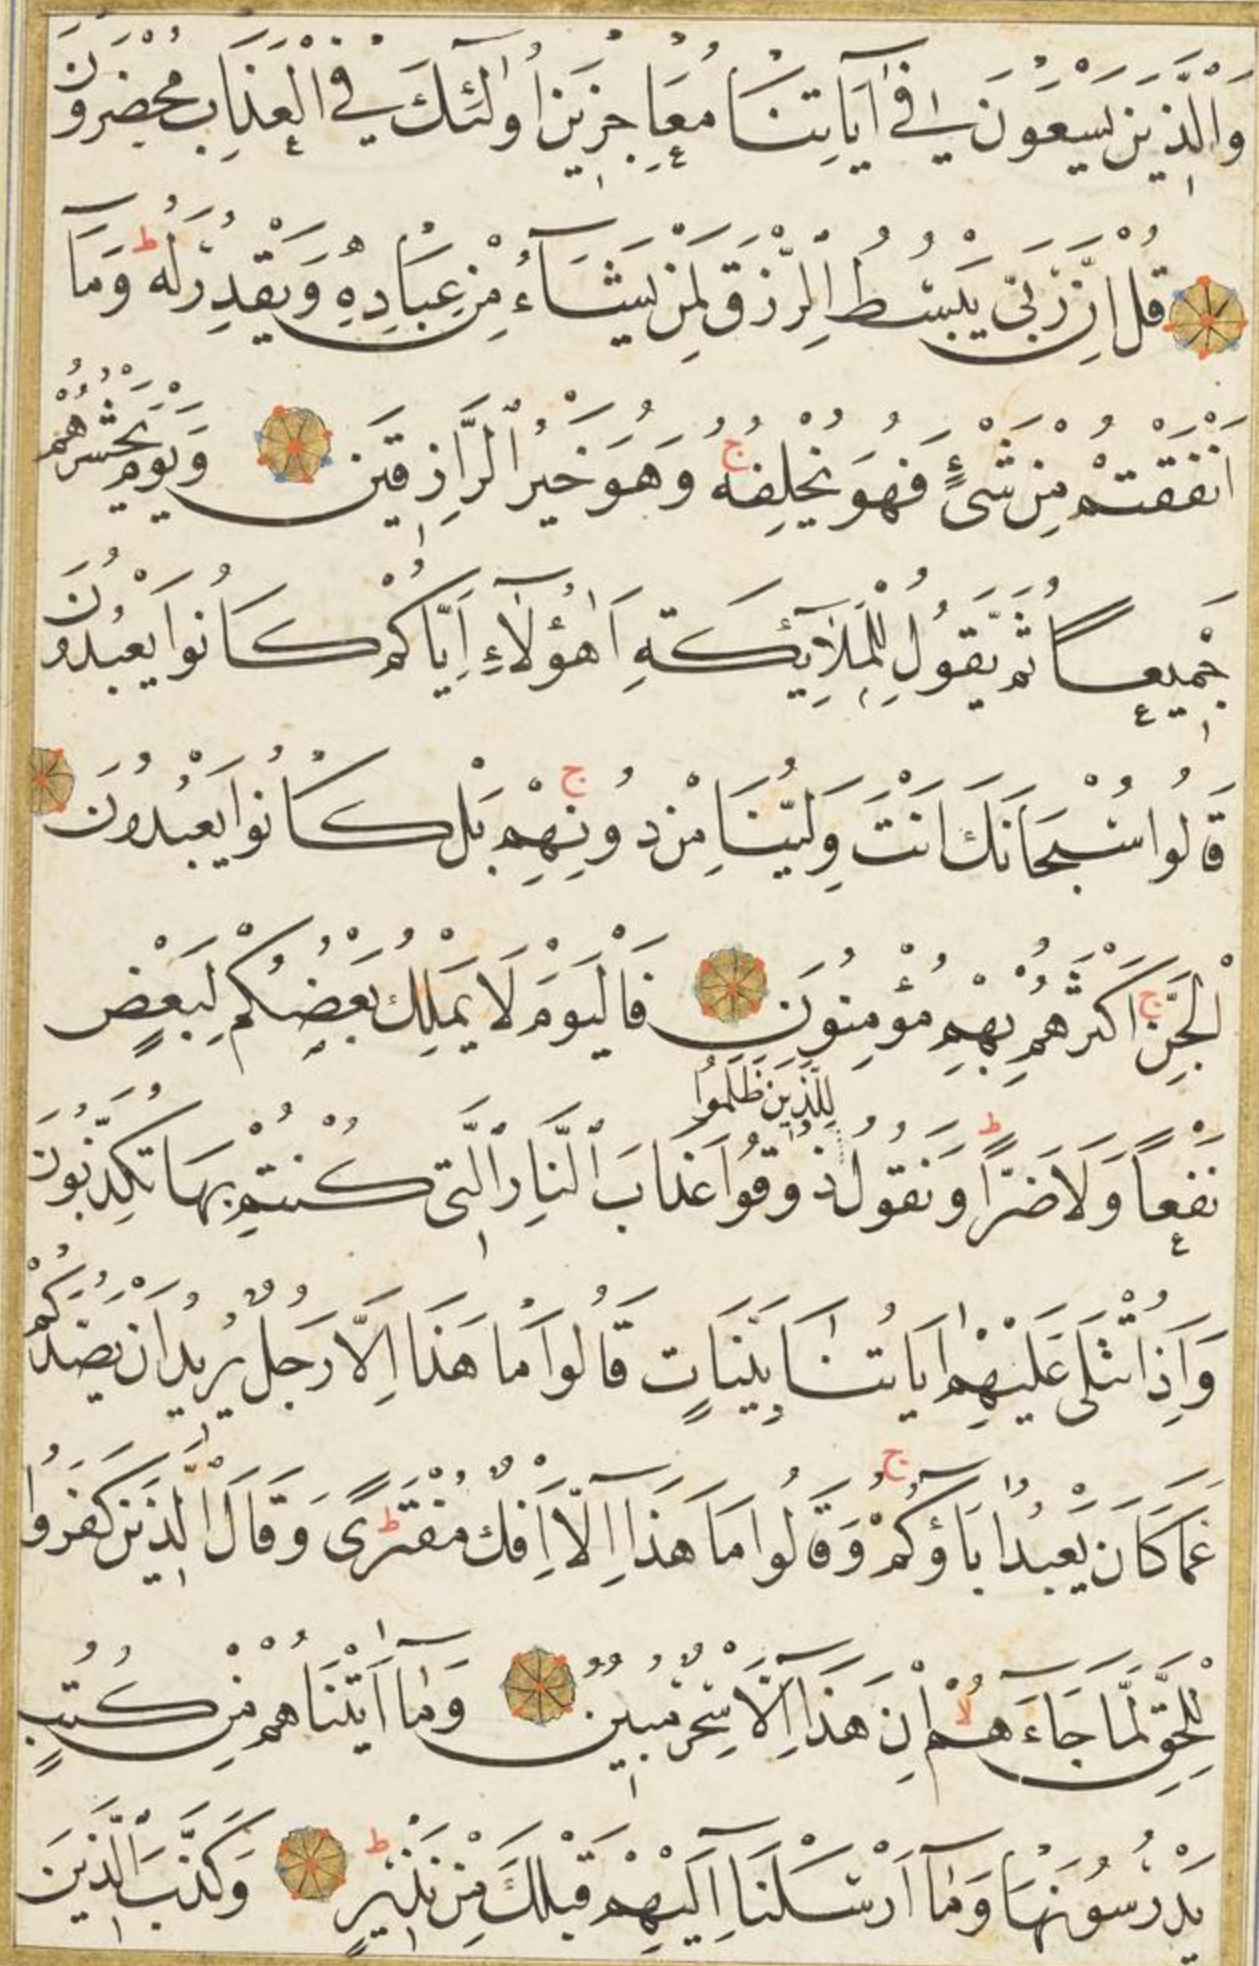 وَالَّذِينَ يَسْعَوْنَ فِي آيَاتِنَا مُعَاجِزِينَ أُولَٰئِكَ فِي الْعَذَابِ مُحْضَرُونَ
قُلْ إِنَّ رَبِّي يَبْسُطُ الرِّزْقَ لِمَنْ يَشَاءُ مِنْ عِبَادِهِ وَيَقْدِرُ لَهُ ط وَمَا
أَنْفَقْتُمْ مِنْ شَيْءٍ فَهُوَ يُخْلِفُهُ ج وَهُوَ خَيْرُ الرَّازِقِينَ وَيَوْمَ يَحْشُرُهُمْ
جَمِيعًا ثُمَّ يَقُولُ لِلْمَلَائِكَةِ أَهَٰؤُلَاءِ إِيَّاكُمْ كَانُوا يَعْبُدُونَ
قَالُوا سُبْحَانَكَ أَنْتَ وَلِيُّنَا مِنْ دُونِهِمْ ج بَلْ كَانُوا يَعْبُدُونَ
الْجِنَّ ج أَكْثَرُهُمْ بِهِمْ مُؤْمِنُونَ فَالْيَوْمَ لَا يَمْلِكُ بَعْضُكُمْ لِبَعْضٍ
لِلَّذِينَ ظَلَمُوا
نَفْعًا وَلَا ضَرًّا ط وَنَقُولُ ذُوقُوا عَذَابَ النَّارِ الَّتِي كُنْتُمْ بِهَا تُكَذِّبُونَ
وَإِذَا تُتْلَىٰ عَلَيْهِمْ آيَاتُنَا بَيِّنَاتٍ قَالُوا مَا هَذَا إِلَّا رَجُلٌ يُرِيدُ أَنْ يَصُدَّكُمْ
عَمَّا كَانَ يَعْبُدُ آبَاؤُكُمْ ج وَقَالُوا مَا هَذَا إِلَّا إِفْكٌ مُفْتَرًى ط وَقَالَ الَّذِينَ كَفَرُوا
لِلْحَقِّ لَمَّا جَاءَهُمْ لا إِنْ هَذَا إِلَّا سِحْرٌ مُبِينٌ وَمَا آتَيْنَاهُمْ مِنْ كُتُبٍ
يَدْرُسُونَهَا وَمَا أَرْسَلْنَا إِلَيْهِمْ قَبْلَكَ مِنْ نَذِيرٍ ط وَكَذَّبَ الَّذِينَ